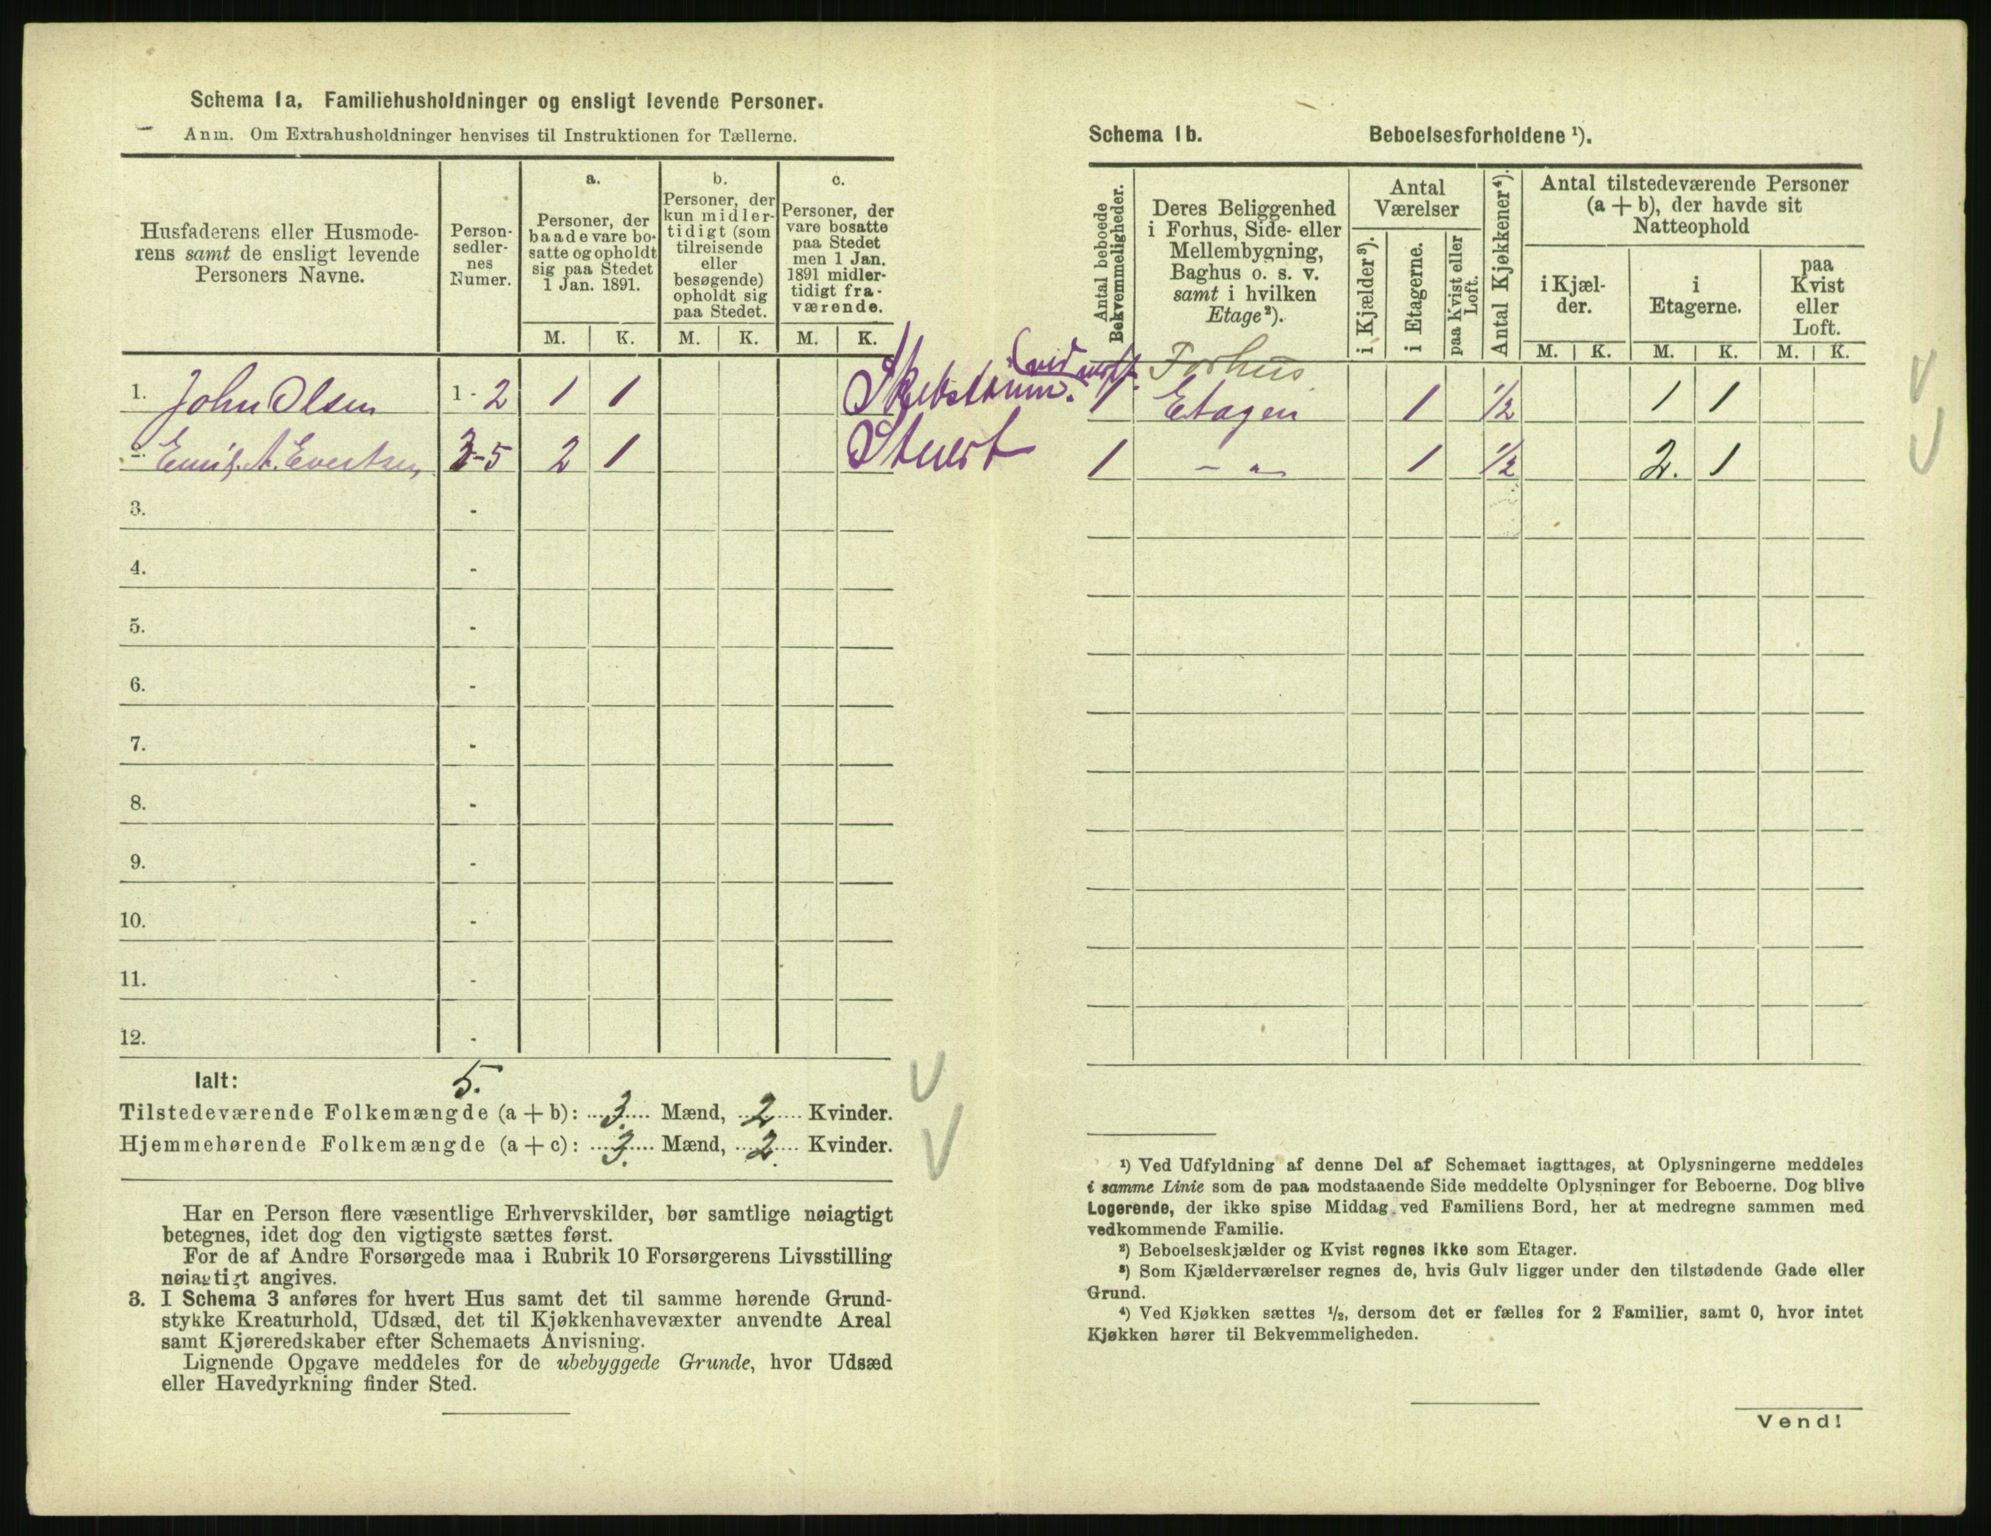 Schema 1a. Familiehusholdninger og ensligt levende Personer.
Anm. Om Extrahusholdninger henvises til Instruktionen for Tællerne.
Husfaderens eller Husmode-
rens samt de ensligt levende
Personers Navne.
Person-
sedler-
nes
Numer.
a.
Personer, der
baade vare bo-
satte og opholdt
sig paa Stedet
1 Jan. 1891.
b.
Personer, der
kun midler-
tidigt (som
tilreisende
eller
besøgende)
opholdt sig
paa Stedet.
c.
Personer, der
vare bosatte
paa Stedet
men 1 Jan.
1891 midler-
tidigt fra-
værende.
M. K. M. K. M. K.
1. John Olsen 1-2 1 1
2. Emil A. Evertsen 3-5 2 1 Stuert
3. -
4. -
5. -
6. -
7. -
8. -
9. -
10. -
11. -
12. -
Ialt: 5.
Tilstedeværende Folkemængde (a + b): 3. Mænd, 2 Kvinder.
Hjemmehørende Folkemængde (a + c): 3. Mænd, 2. Kvinder.
Har en Person flere væsentlige Erhvervskilder, bør samtlige nøiagtigt
betegnes, idet dog den vigtigste sættes først.
For de af Andre Forsørgede maa i Rubrik 10 Forsørgerens Livsstilling
nøiagtigt angives.
3. I Schema 3 anføres for hvert Hus samt det til samme hørende Grund-
stykke Kreaturhold, Udsæd, det til Kjøkkenhavevæxter anvendte Areal
samt Kjøreredskaber efter Schemaets Anvisning.
Lignende Opgave meddeles for de ubebyggede Grunde, hvor Udsæd
eller Havedyrkning finder Sted.
Schema 1b. Beboelsesforholdene ¹).
Antal beboede
Bekvemmeligheder.
Deres Beliggenhed
i Forhus, Side- eller
Mellembygning,
Baghus o. s. v.
samt i hvilken
Etage²).
Antal
Værelser
i Kjælder³).
i Etagerne.
paa Kvist eller
Loft.
Antal Kjøkkener⁴).
Antal tilstedeværende Personer
(a + b), der havde sit
Natteophold
i Kjæl-
der.
i
Etagerne.
paa
Kvist
eller
Loft.
M. K. M. K. M. K.
Forhus
1 Etagen 1 1/2 1 1
1 - " - 1 1/2 2. 1
¹) Ved Udfyldning af denne Del af Schemaet iagttages, at Oplysningerne meddeles
i samme Linie som de paa modstaaende Side meddelte Oplysninger for Beboerne. Dog blive
Logerende, der ikke spise Middag ved Familiens Bord, her at medregne sammen med
vedkommende Familie.
²) Beboelseskjælder og Kvist regnes ikke som Etager.
³) Som Kjælderværelser regnes de, hvis Gulv ligger under den tilstødende Gade eller
Grund.
⁴) Ved Kjøkken sættes ½, dersom det er fælles for 2 Familier, samt 0, hvor intet
Kjøkken hører til Bekvemmeligheden.
Vend!